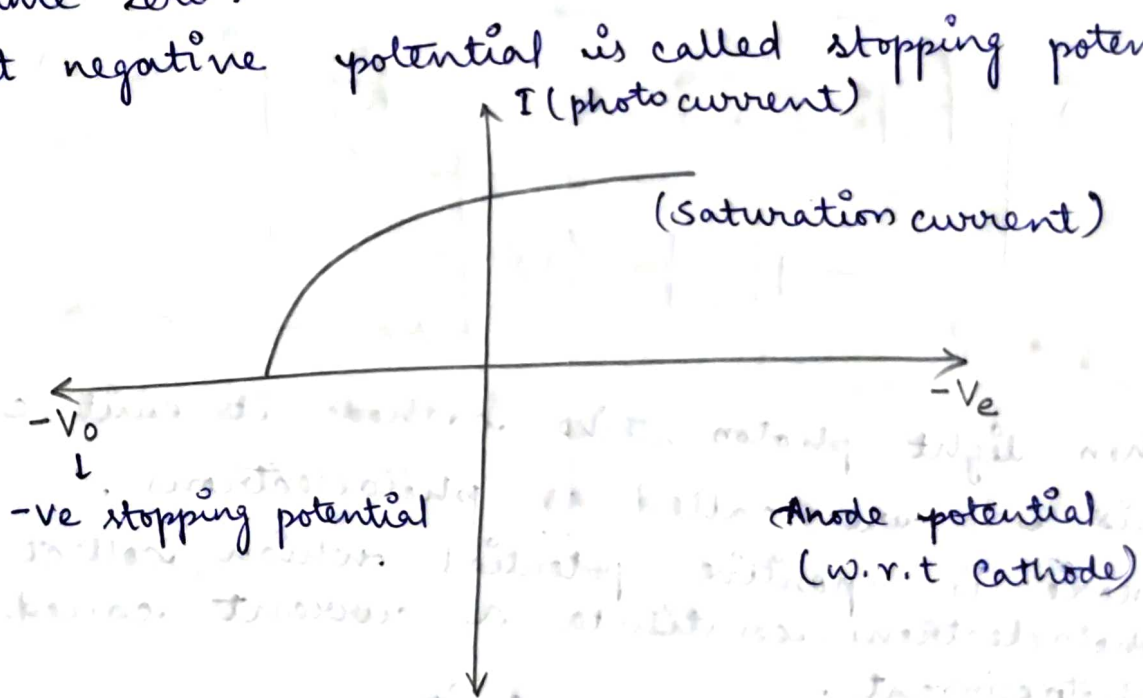 zero.
negative potential is called stopping poten
I (photo current)
(saturation current)
-V₀
↓
-Ve
-ve stopping potential
Anode potential
(w.r.t Cathode)